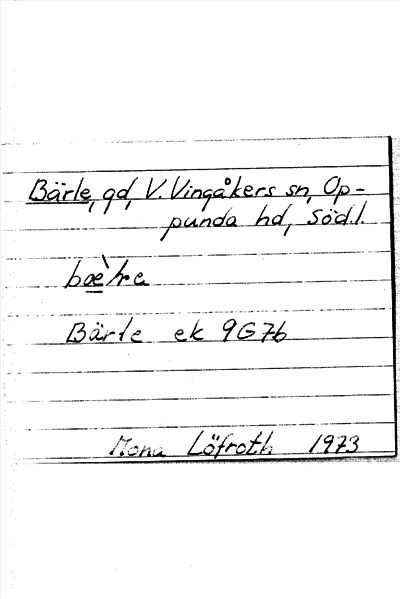 Bärle, gd, V. Vingåkers sn, Op-
punda hd, Södl.
Bärle ek 9G7b
Mona Löfroth 1973